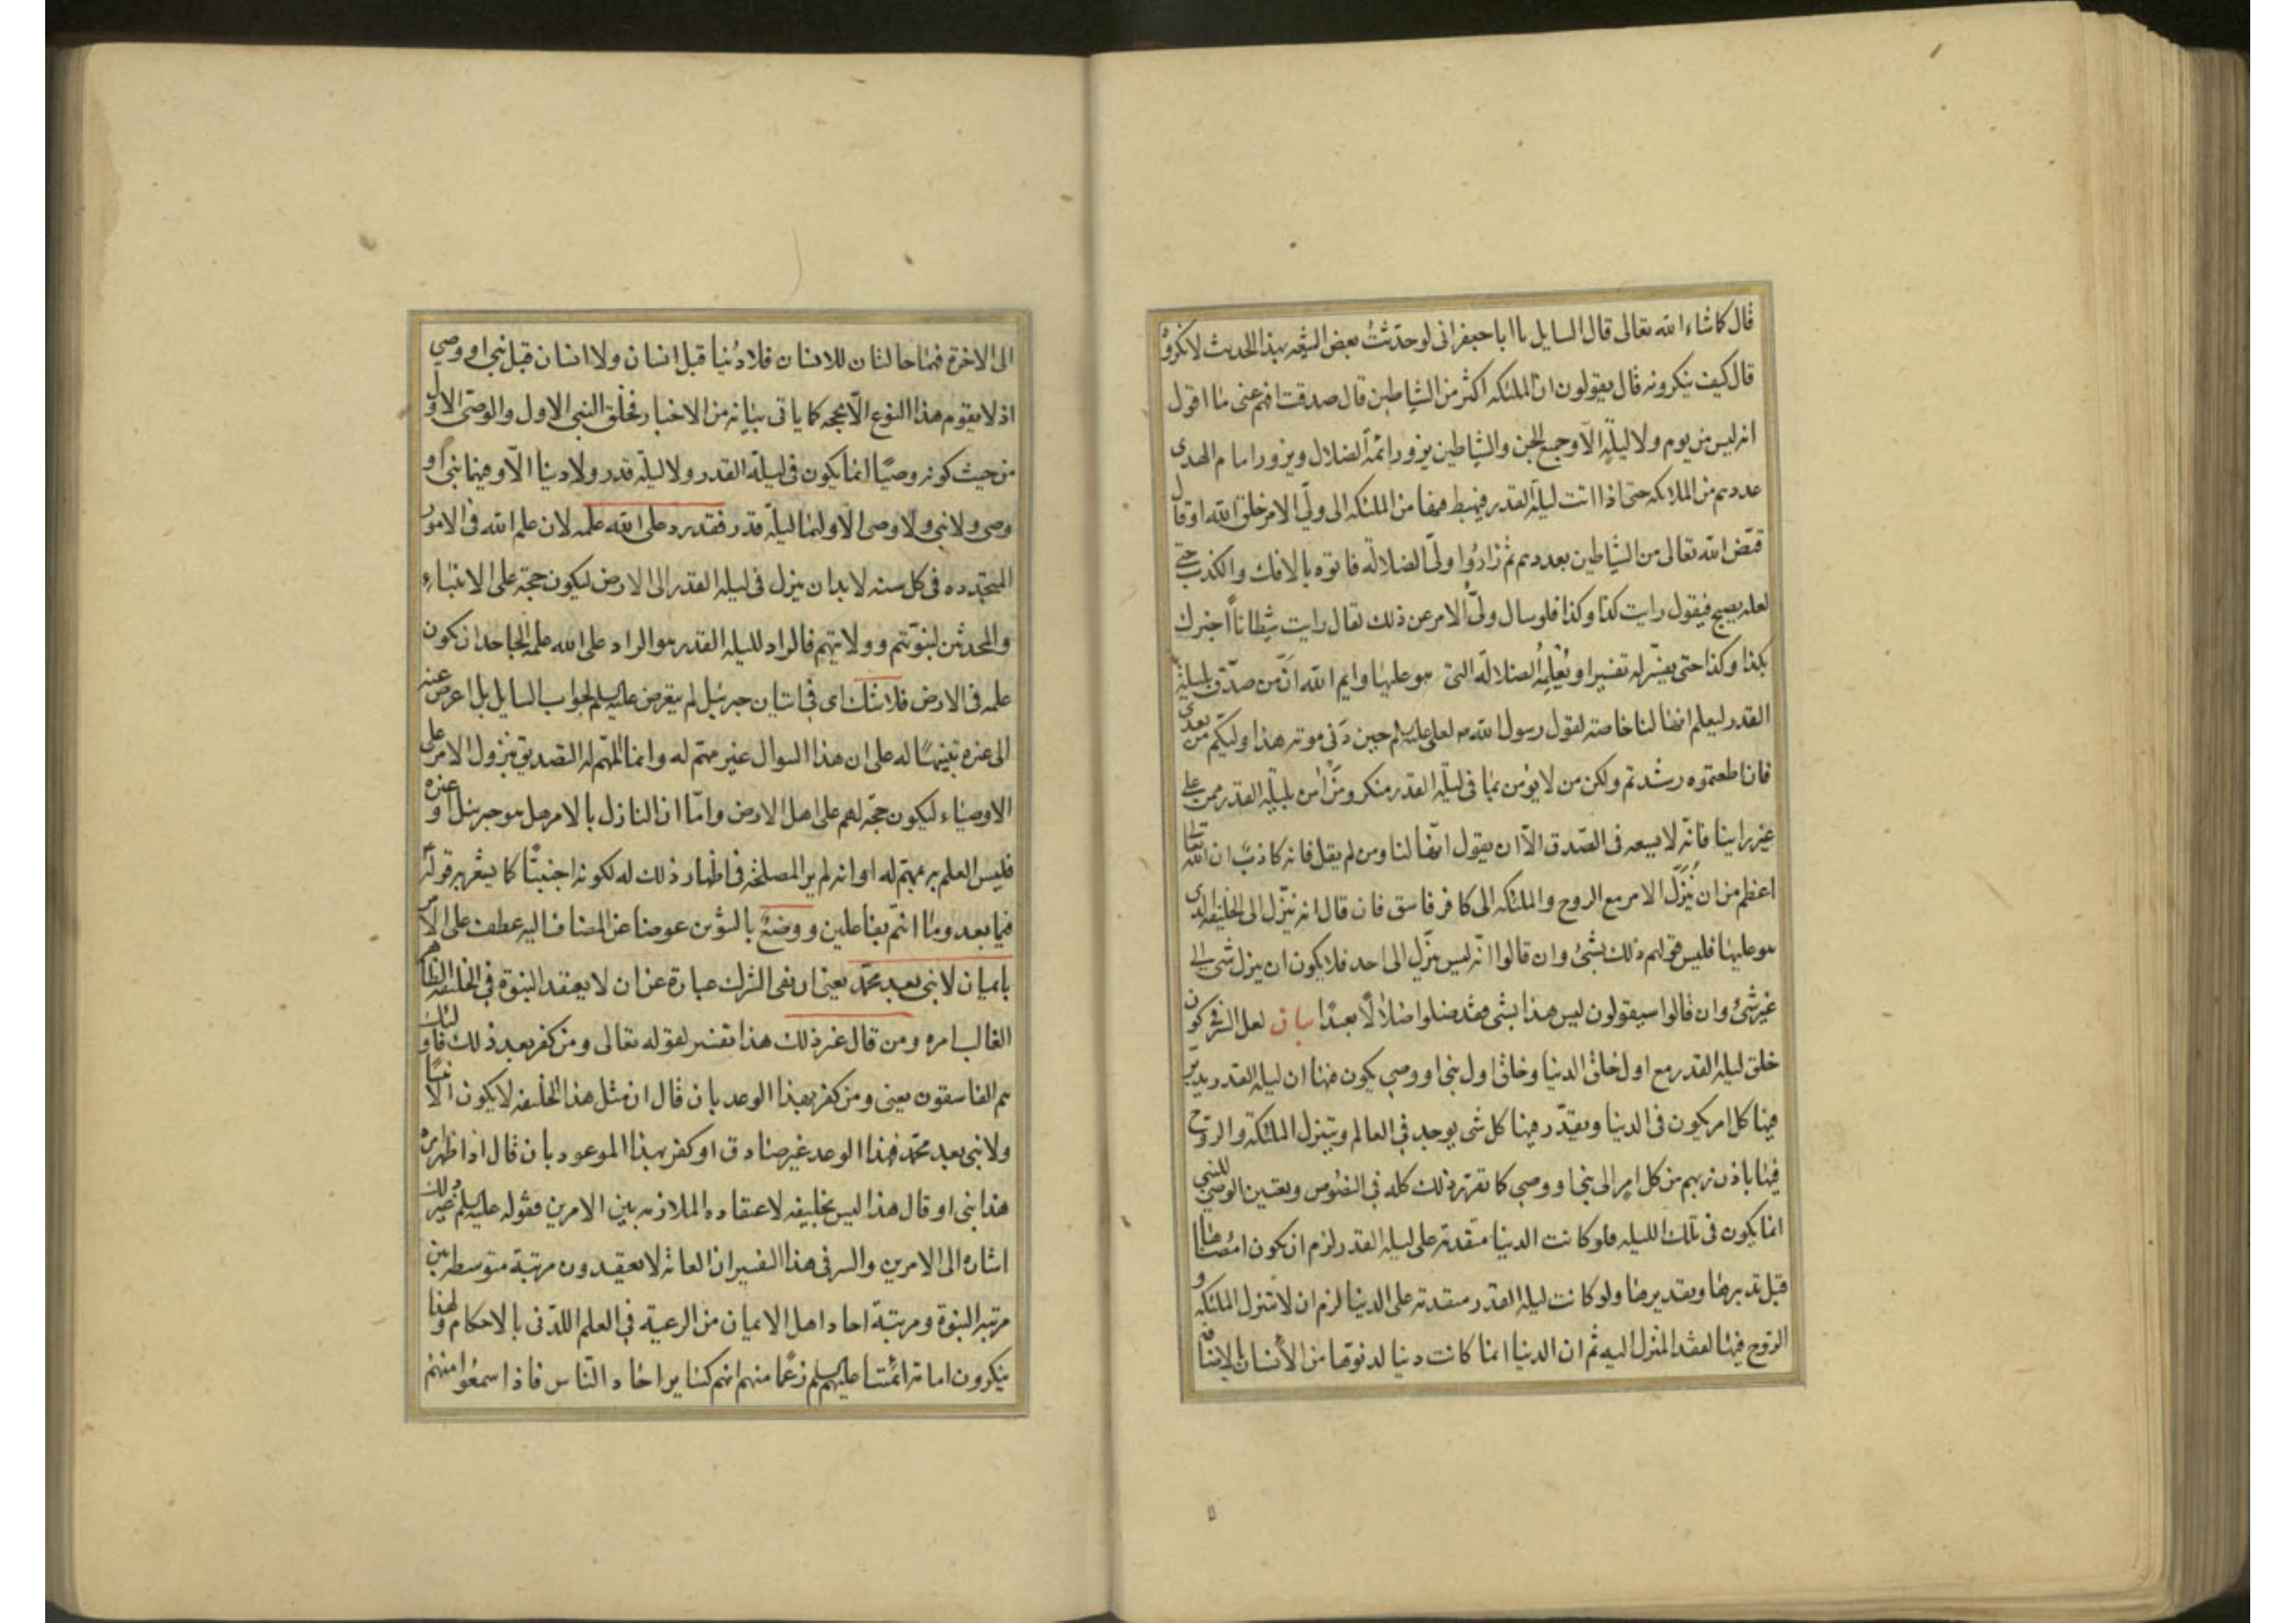 قال كما شاء الله تعالى قال السايل يا ابا جعفر انى لو حدّثتُ بعض الشيعه بهذا الحديث لانكروُ
قال كيف ينكرونه قال يقولون ان الملئكه اكثر من الشياطين قال صدقت افهم عنى ما اقول
انه ليس من يوم ولا ليلة الا وجميع الجن والشياطين يزور ائمة الضلال ويزور امام الهدى
عددهم من الملائكه حتى اذا اتت ليلة القدر فيهبط فيها من الملئكه الى ولىّ الامر خلق الله او قال
قيّض الله تعالى من الشياطين بعددهم ثم زارُوا ولىّ الضلالة فاتوه بالافك والكذب حتى
لعله يصبح فيقول رايت كذا وكذا فلو سال ولىّ الامر عن ذلك لقال رايت شيطاناً اخبرك
بكذا وكذا حتى يفسّر له تفسيرا ويُعْلِمُه الضلالة التى هو عليها وايم الله انّ من صدّق بليلة
القدر ليعلم انها لنا خاصة لقول رسول الله ص لعلى عليه السلم حين دَنى موته هذا وليّكم من بعدى
فان اطعتموه رشدتم ولكن من لا يؤمن بما فى ليلة القدر منكر ومَن اٰمن بليلة القدر ممن على
غير راينا فانّه لا يسعه فى الصّدق الاّ ان يقول انّها لنا ومن لم يقل فانه كاذبٌ ان الله تعالى
اعظم من ان يُنَزِّل الامر مع الروح والملئكه الى كافر فاسق فان قال انه ينزّل الى الخليفه الذى
هو عليها فليس قولهم ذلك بشئ وان قالوا انّه ليس ينزّل الى احد فلا يكون ان ينزل شئ الى
غير شئ وان قالوا سيقولون ليس هذا بشى فقد ضلوا ضلالاً بعيدًا بيان لعل السّر فى كون
خلق ليلة القدر مع اول خلق الدنيا وخلق اول نبى او وصى يكون فيها ان ليلة القدر يدبّر
فيها كل امر يكون فى الدنيا ويقدّر فيها كل شى يوجد فى العالم ويتنزل الملئكة والروح
فيها باذن ربهم من كل امر الى نبى او وصى كما تقرّر ذلك كله فى النصوص وتعيين الوصى للنبى
انما يكون فى تلك الليله فلو كانت الدنيا متقدمة على ليلة القدر لزم ان يكون امضاها
قبل تدبيرها وتقديرها ولو كانت ليلة القدر متقدمة على الدنيا لزم ان لا تتنزل الملئكه و
الرّوح فيها لفقد المنزل اليه ثم ان الدنيا انما كانت دنيا لدنوها من الأنسان بالاضافة
الى الاخرة فهما حالتان للانسان فلا دُنيا قبل انسان ولا انسان قبل نبى او وصى
اذ لا يقوم هذا النوع الاّ بحجه كما ياتى بيانه من الاخبار فخلق النبى الاول والوصىّ الاول
من حيث كونه وصيّا انما يكون فى ليلة القدر ولا ليلة قدر ولا دينا الاّ وفيهما نبى او
وصى ولا نبى ولا وصى الا ولهما ليلة قدر فقد رد على الله علمه لان علم الله فى الامور
المتجدده فى كل سنه لا بد ان ينزل فى ليلة القدر الى الارض ليكون حجة على الانبياء
والمحدثين لنبوّتهم وولايتهم فالراد لليلة القدر هو الراد على الله علمه الجاحد ان يكون
علمه فى الارض فلا شك اى فى اتيان جبرئيل لم يتعرض عليه السلم لجواب السايل بل اعرض عنه
الى غيره تنبيهًا له على ان هذا السوال غير مهم له وانما المهم له التصديق بنزول الامر على
الاوصياء ليكون حجّة لهم على اهل الارض وامّا ان النازل بالامر هل هو جبرئيل او غيره
فليس العلم به بمهم له او انه لم ير المصلحة فى اظهار ذلك له لكونه اجنبيًّا كما يشعر به قولُه
فيما بعد وما انتم بفاعلين ووضعَ بالتنوين عوضا عن المضاف اليه عطف على الامر
بايمان لا نبى بعد محمّد يعنى ان نفى الشرك عبارة عن ان لا يعتقد النبوة فى الخليفه الظاهر
الغالب امره ومن قال غير ذلك هذا تفسير لقوله تعالى ومن كفر بعد ذلك فاولئك
هم الفاسقون يعنى ومن كفر بهذا الوعد بان قال ان مثل هذا الخليفه لا يكون الا نبيًّا
ولا نبى بعد محمّد فهذا الوعد غير صادق او كفر بهذا الموعود بان قال اذا ظهر امره
هذا نبى او قال هذا ليس بخليفه لاعتقاده الملازمه بين الامرين فقوله عليه السلم غير ذلك
اشاره الى الامرين والسر فى هذا التفسير ان العامّه لا يعتقدون مرتبة متوسطه بين
مرتبة النبوة ومرتبة احاد اهل الايمان من الرعية فى العلم اللدّنى بالاحكام ولهذا
ينكرون امامة ائمّتنا عليهم السلم زعمًا منهم انهم كساير احاد النّاس فاذا سمعُوا منهم